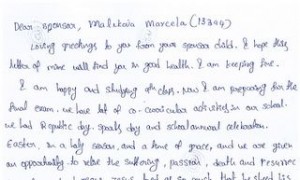 Dear Sponsor, Malikaia Marcela (13844)
Loving greetings to you from your sponsor child. I hope this
letter of mine will find you in good health. I am keeping fine.
I am happy and studying 9th class. Now I am preparing for the
final exam. we have lot of co-curricular activities in our school.
we had Republic day, sports day and school annual celebration.
Easter, in a holy season and a time of grace, and we are given
an opportunity to relive the suffering, passion, death and